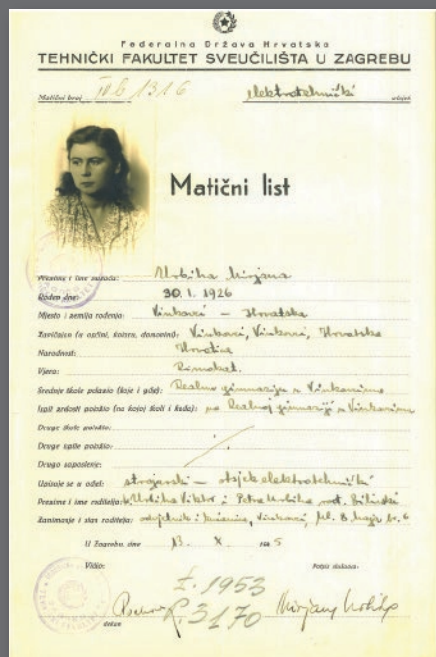 Federalna Država Hrvatska
TEHNIČKI FAKULTET SVEUČILIŠTA U ZAGREBU
Matični broj IVb 1316 elektrotehnički odsjek
Matični list
Prezime i ime slušača: Urbiha Mirjana
Rođen dne: 30. 1. 1926
Mjesto i zemlja rođenja: Vinkovci – Hrvatska
Zavičajan (u općini, kotaru, domovini): Vinkovci, Vinkovci, Hrvatska
Narodnost: Hrvatica
Vjera: Rimokat.
Srednje škole polazio (koje i gdje): Realnu gimnaziju u Vinkovcima
Ispit zrelosti položio (na kojoj školi i kada): na Realnoj gimnaziji u Vinkovcima
Druge škole polazio:
Druge ispite položio:
Drugo zaposlenje:
Upisuje se u odjel: strojarski – otsjek elektrotehnički
Prezime i ime roditelja: Urbiha Viktor i Petra Urbiha rođ.
Zanimanje i stan roditelja: odvjetnik i kućanica, Vinkovci, Ul. 8 maja br. 6
U Zagrebu dne 13. X. 1945
Vidio: Potpis slušača:
Ž. 1953
R. 3170
dekan Mirjana Urbiha